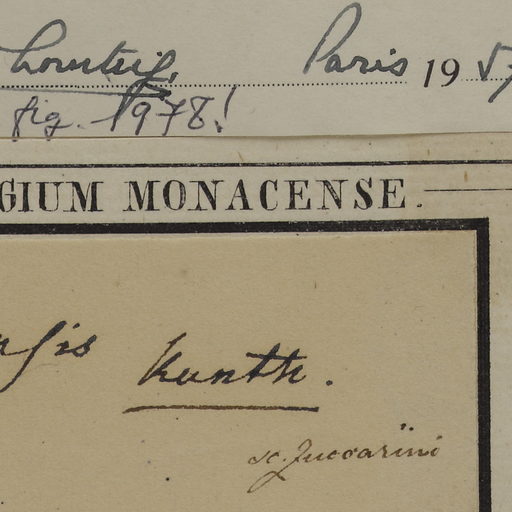 Lourteig, Paris 195
fig. 1978!
GIUM MONACENSE.
Kunth.
sc. Zuccarini